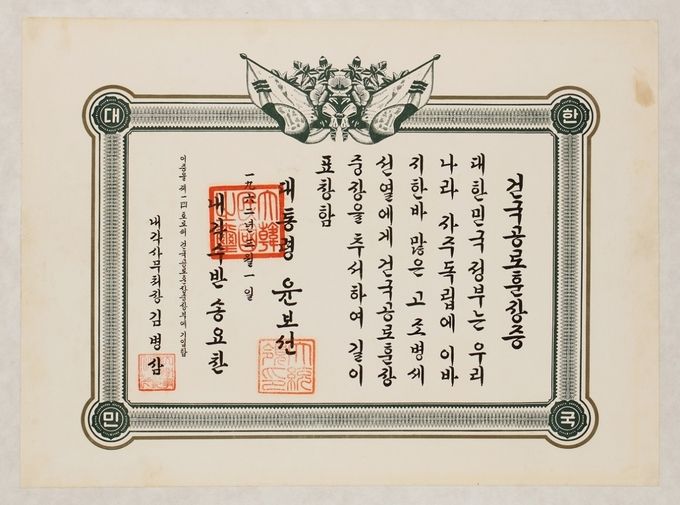 대 한
민 국
건국공로훈장증
대한민국 정부는 우리
나라 자주독립에 이바
지한바 많은 고 로병세
선열에게 건국공로훈장
중장을 추서하여 길이
표창함
대통령 윤보선
一九六二년 三월 一일
내각수반 송요찬
이 증을 제一四호로써 건국공로훈장증부에 기입함
내각사무처장 김병삼